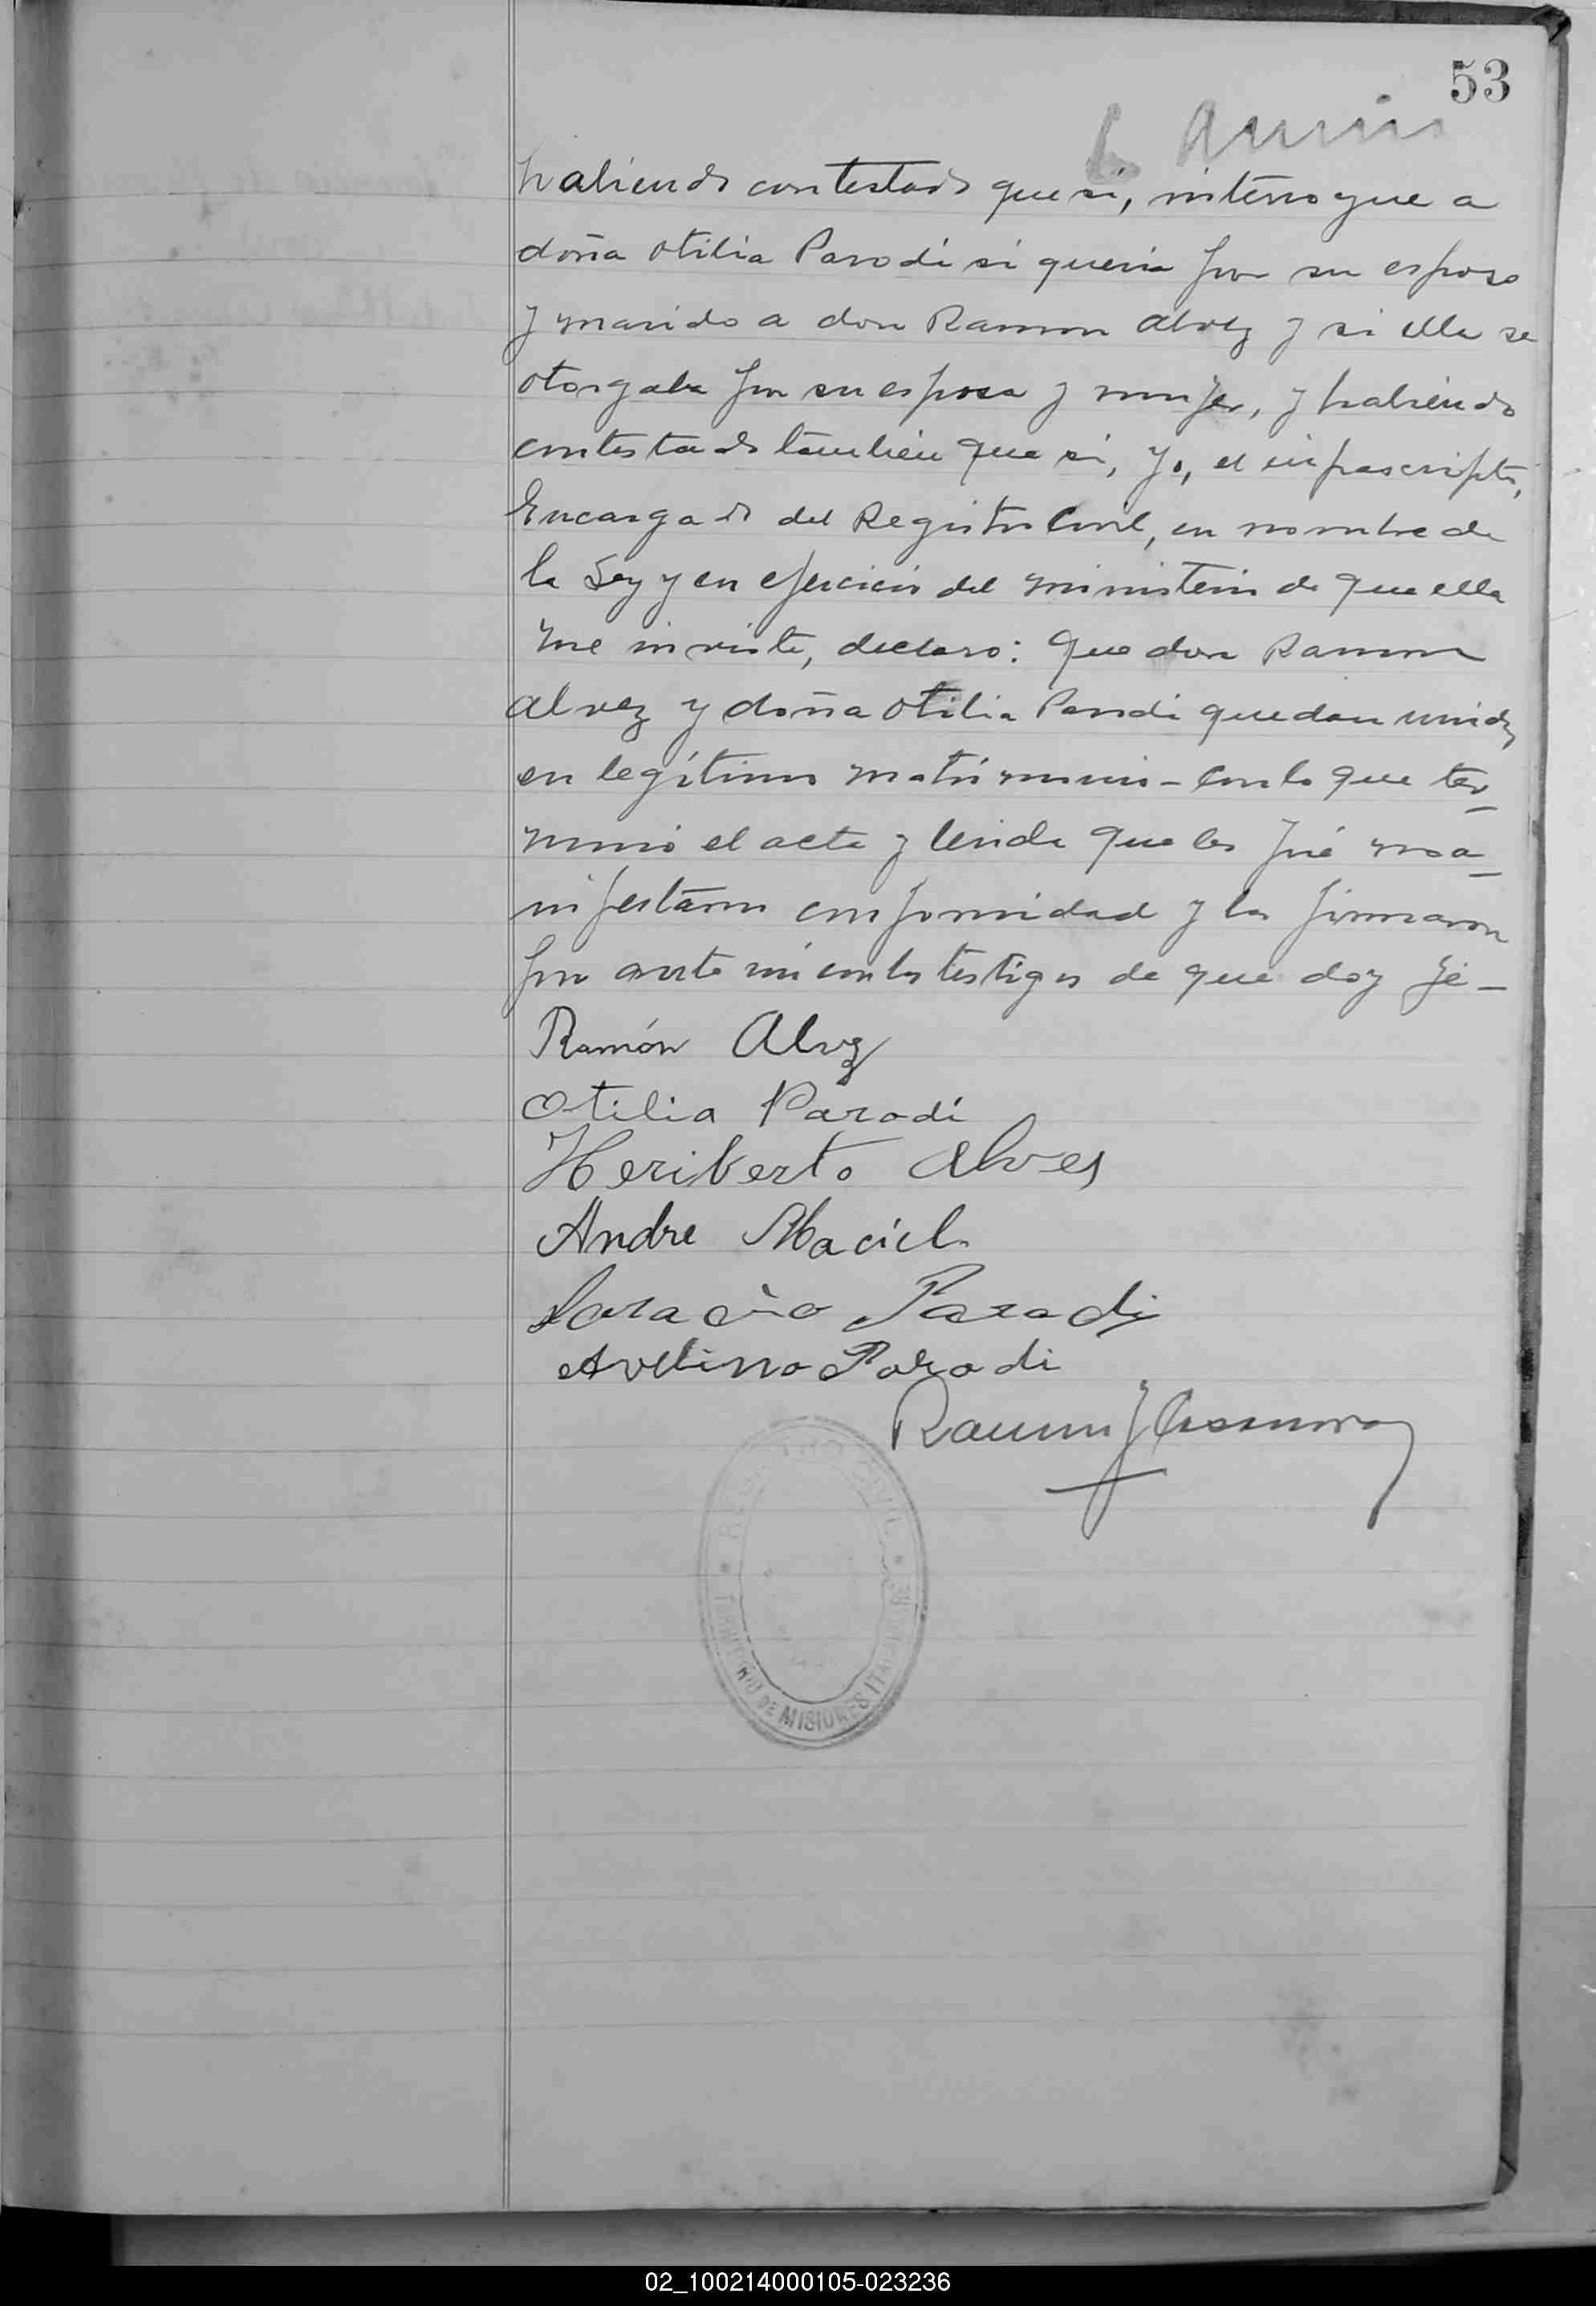 53
habiendo contestado que si, interrogue a
doña Otilia Parodi si queria por su esposo
y marido a don Ramon Alvez y si ella se
otorgaba por su esposa y mujer, y habiendo
contestado tambien que si, Yo, el infrascripto,
Encargado del Registro Civil, en nombre de
la Ley y en ejercicio del ministerio de que ella
me inviste, declaro: Que don Ramon
Alvez y doña Otilia Parodi quedan unidos
en legítimo matrimonio - Con lo que ter-
minó el acta y leida que les fué ma-
nifestaron conformidad y la firmaron
por ante mi con los testigos de que doy fé -
Ramón Alvez
Otilia Parodi
Heriberto Alves
Andre Maciel
Parodi
Avelino Parodi
Ramon J
REGISTRO CIVIL
TERRITORIO DE MISIONES
02_100214000105-023236